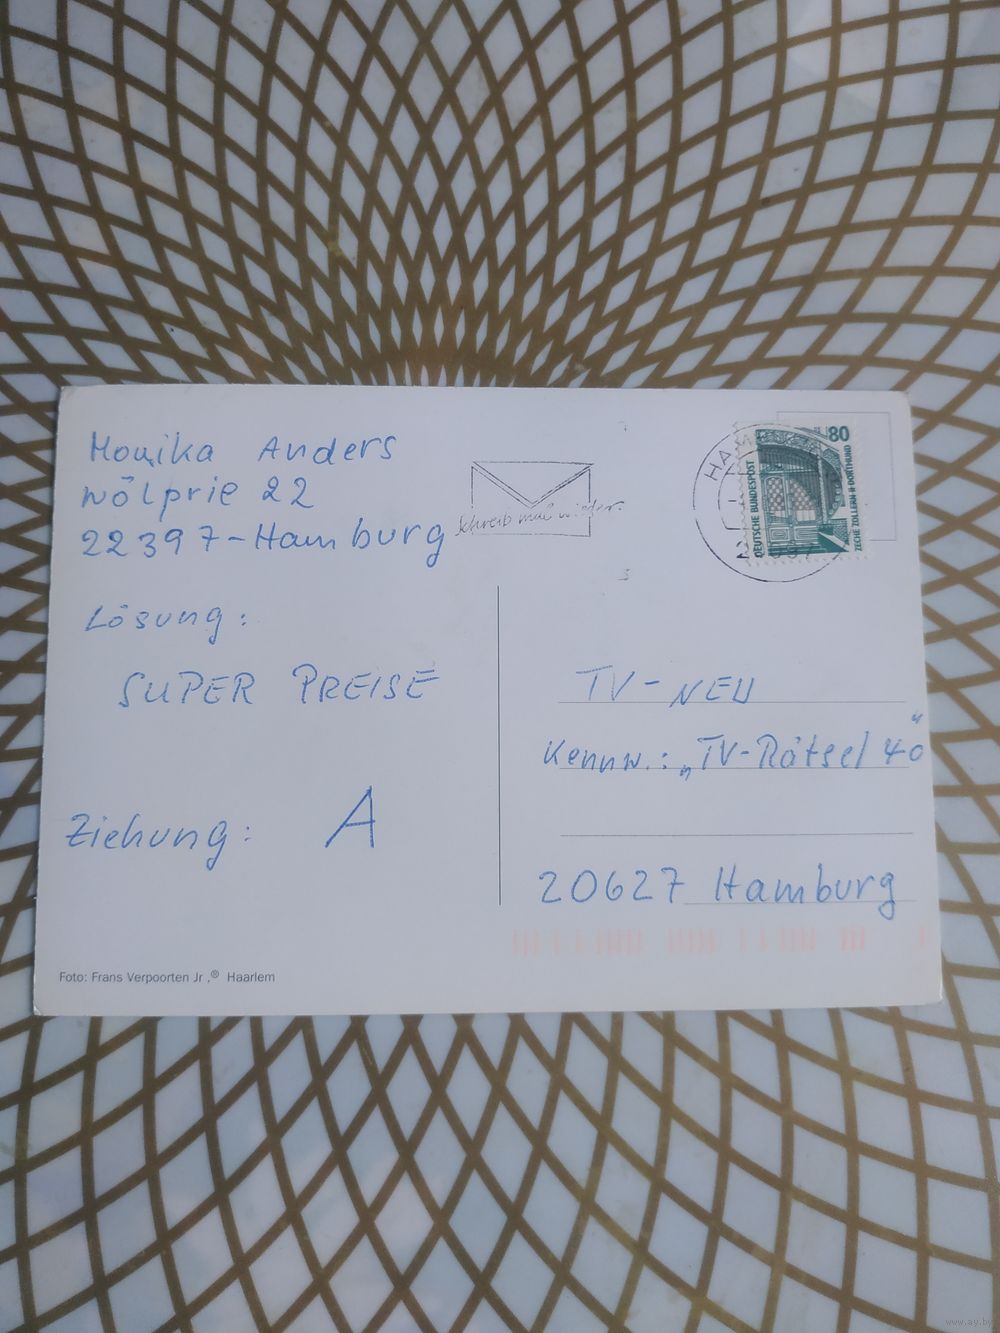 Monika Anders
Wölprie 22
22397-Hamburg
Schreib mal wieder.
HA
80
DEUTSCHE BUNDESPOST
ZECHE ZOLLERN II DORTMUND
Lösung:
SUPER PREISE
TV-NEU
Kennw.: „TV-Rätsel 40"
Ziehung: A
20627 Hamburg
Foto: Frans Verpoorten Jr ,® Haarlem
www.ay.by